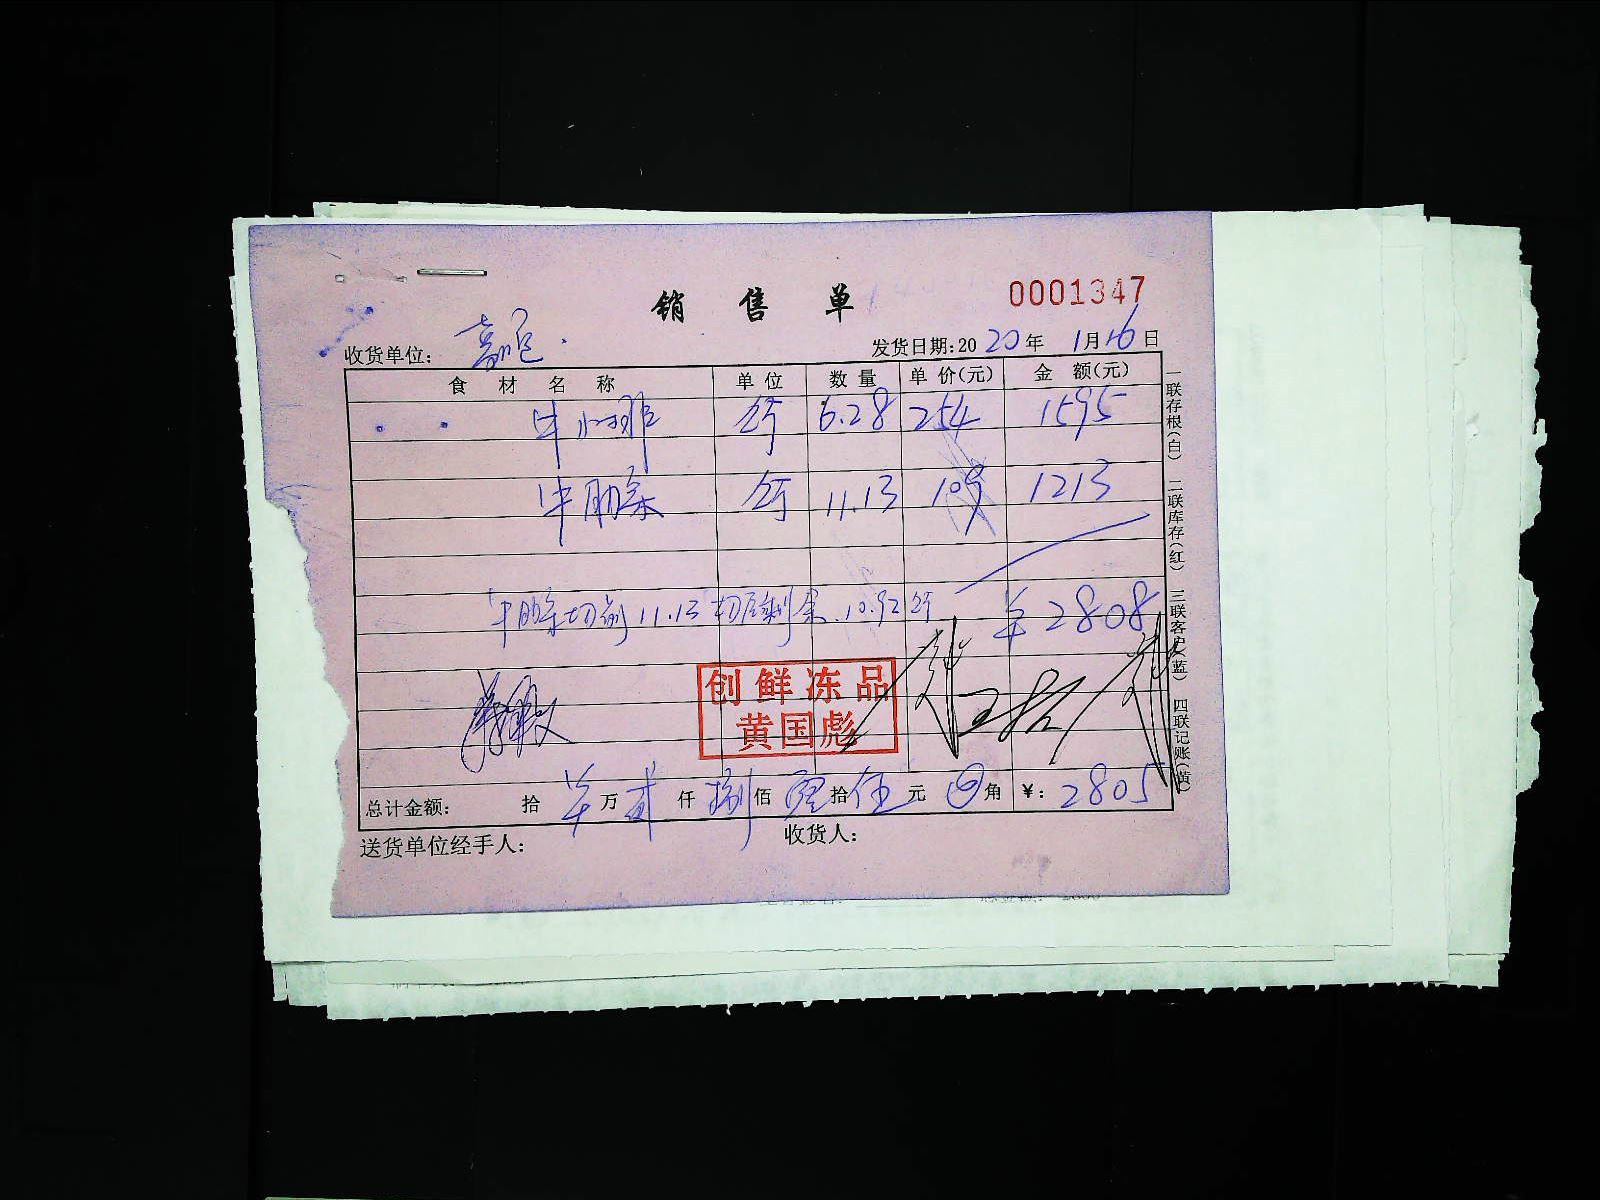 销售单
0001347
收货单位：
发货日期：2020年1月16日
食材名称 单位 数量 单价(元) 金额(元)
牛 公斤 6.28 254 1595
牛肋条 公斤 11.13 109 1213
牛肋条切前11.13切后剩余10.92公斤 ¥2808
创鲜冻品
黄国彪
总计金额： 拾 万贰仟捌佰零拾伍元 角 ¥：2805
送货单位经手人： 收货人：
一联存根(白) 二联库存(红) 三联客户(蓝) 四联记账(黄)